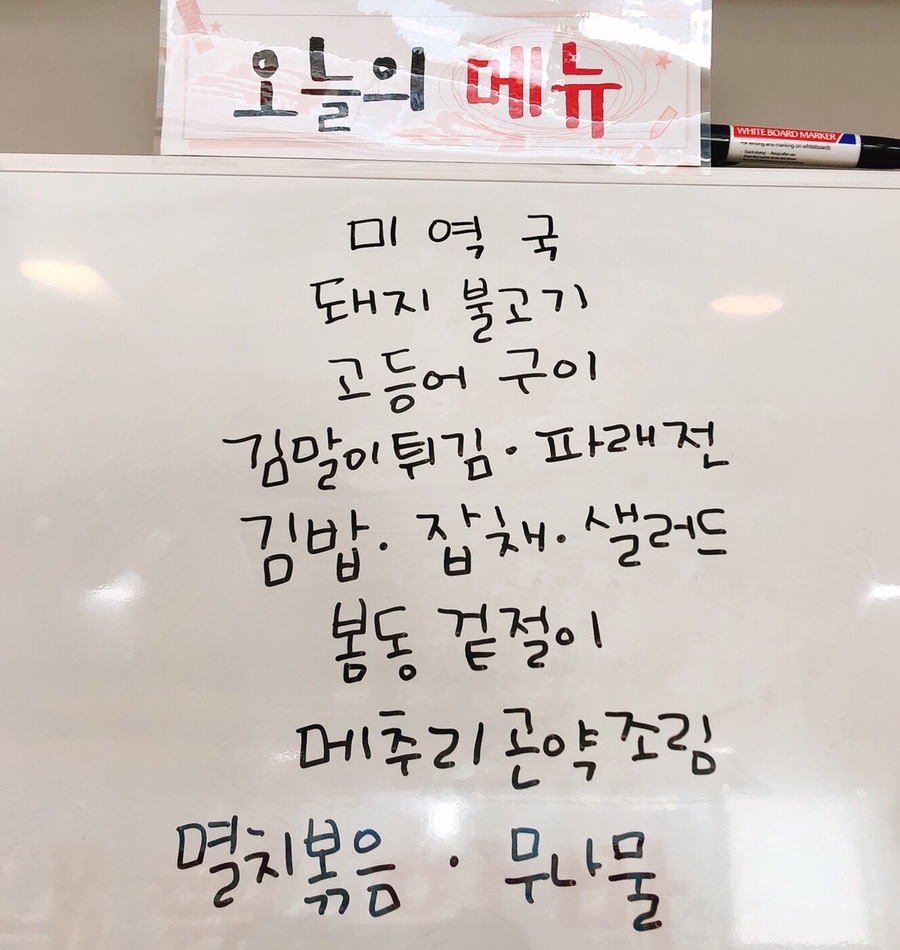 오늘의 메뉴
WHITE BOARD MARKER
For writing and marking on whiteboards
미역국
돼지 불고기
고등어 구이
김말이튀김·파래전
김밥·잡채·샐러드
봄동 겉절이
메추리곤약조림
멸치볶음·무나물